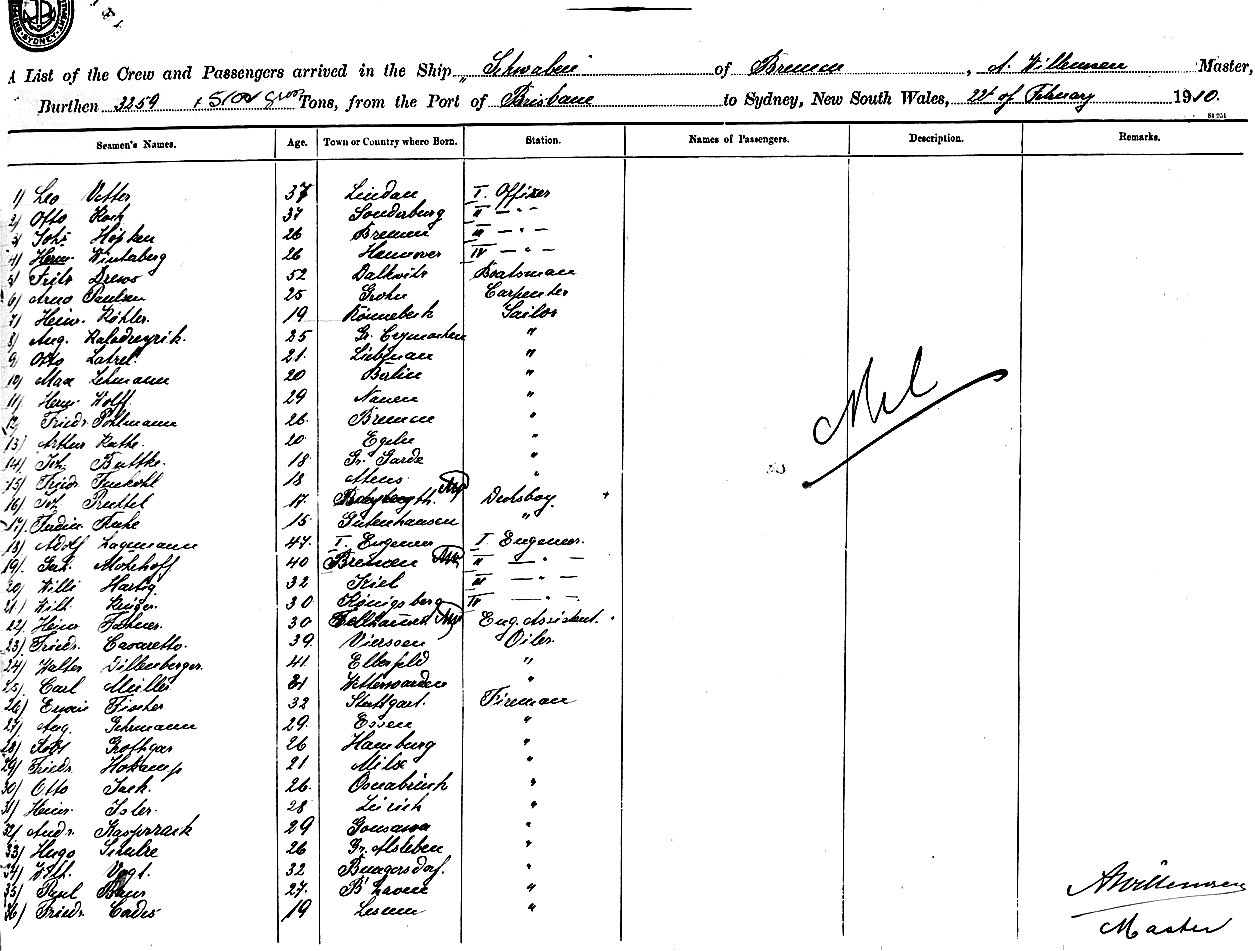 SYDNEY
A List of the Crew and Passengers arrived in the Ship „ Schwaben of Bremen , A. Willemsen Master,
Burthen 3259 Tons, from the Port of Brisbane to Sydney, New South Wales, 22d of February 1910.
Seamen's Names. Age. Town or Country where Born. Station. Names of Passengers. Description. Remarks.
1) Leo Vetter 37 Lindau I. Offizer
2) Otto Koch 37 Sonderburg II — " —
3) Johs Höpken 26 Bremen III — " —
4) Herm. Winterberg 26 Hannover IV — " —
5) Fritz Drews 52 Dalkvitz Boatsman
6) Arno Paulsen 25 Grohn Carpenter
7) Heinr. Köhler. 19 Rönnebeck Sailor
8) Aug. 25 Gr. "
9) Otto Latrel. 21. "
10) Max Lehmann 20 Berlin "
11) Herm. Wolff. 29 Nauen "
12) Friedr. Pohlmann 26. Bremen "
13) Arthur Rathe. 20 Egeln "
14) Buttke. 18 Gr. Garde "
15) Friedr. 18 Atens "
16) 17 Decksboy.
17) Ferdin. 15 "
18) Adolf Lagemann 47. I. Engineer I Engeneer.
19) 40 Bremen II — " —
20) Willi Hartig 32 Kiel III — " —
21) Wilh. Krüger. 30 Königsberg IV — " —
22) Heinr. 30 Eng. Assistent.
23) Friedr. Cavaretto. 39 Viersen Oiler
24) Walter Dillenberger. 41. Elberfeld "
25) Carl Müller 31 "
26) Erwin Fischer 32 Stuttgart. Fireman
27) Aug. Gehrmann 29. Essen "
28) 26 Hamburg "
29) Friedr. Hokamp 21 Milse "
30) Otto Jack. 26. Osnabrück "
31) Heinr. Isler. 28 Zürich "
32) Andr. Kasprzack 29 Gonsawa "
33) Hugo Schulze 26 Gr. Alsleben "
34) Wilh. Vogt. 32 "
35) Paul Baur 27. B'haven "
36) Friedr. Cordes 19 Lesum "
Nil
AWillemsen
Master